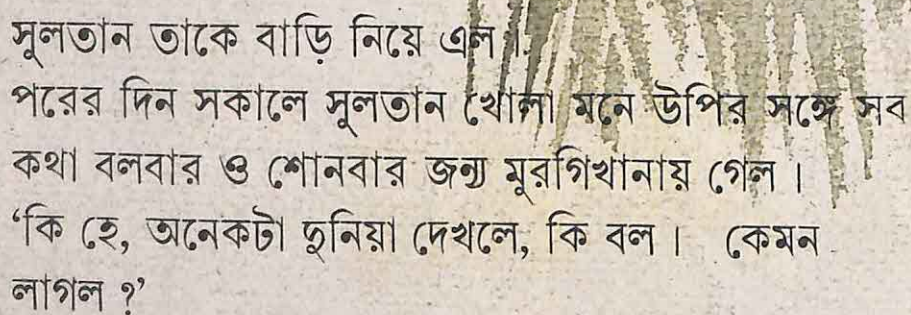 সুলতান তাকে বাড়ি নিয়ে এল।
পরের দিন সকালে সুলতান খোলা মনে উপির সঙ্গে সব
কথা বলবার ও শোনবার জন্য মুরগিখানায় গেল।
‘কি হে, অনেকটা দুনিয়া দেখলে, কি বল। কেমন
লাগল ?’